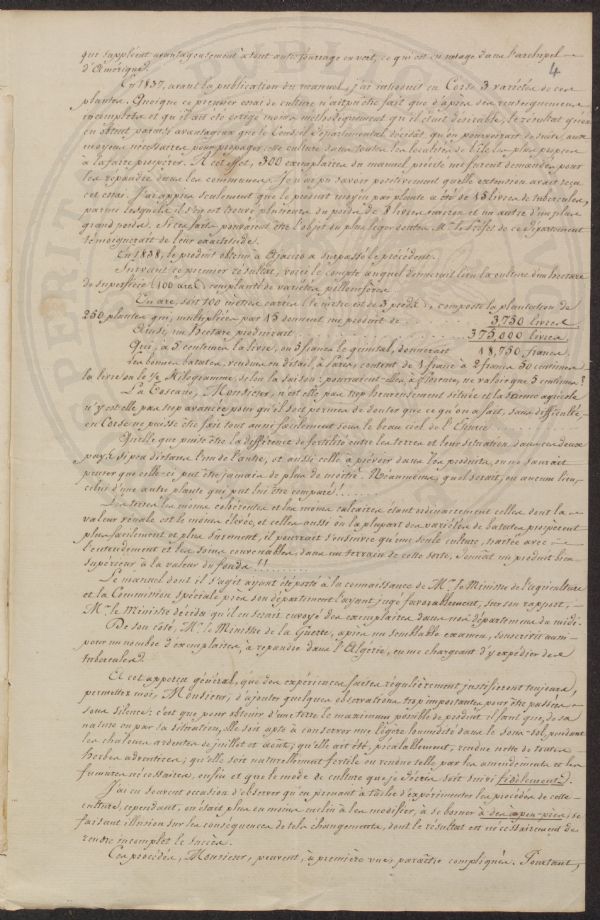 que suppléent avantageusement à tout autre fourrage en vert, ce qui est en usage dans l'archipel
d'Amérique.
4
En 1837, avant la publication du manuel, j'ai introduit en Corse 3 variétés de ces
plantes. Quoique ce premier essai de culture n'ait pu être fait que d'après des renseignemens
incomplets et qu'il ait été dirigé moins méthodiquement qu'il était désirable, le résultat qu'on
en obtint parut si avantageux que le Conseil départemental décida qu'on pourvoirait de suite aux
moyens nécessaires pour propager cette culture dans toutes les localités de l'île les plus propres
à la faire prospérer. A cet effet, 300 exemplaires du manuel précité me furent demandés pour
les répandre dans les communes. Je n'ai pu savoir positivement quelle extension avait reçu
cet essai. J'ai appris seulement que le produit moyen par plante a été de 15 livres de tubercules,
parmi lesquels il s'en est trouvé plusieurs du poids de 8 livres corses et un autre d'un plus
grand poids. Si ces faits pouvaient être l'objet du plus léger doute, Mr. le Préfet de ce Département
témoignerait de leur exactitude.
En 1838, le produit obtenu à Ajaccio a surpassé le précédent.
Suivant ce premier résultat, voici le compte auquel donnerait lieu la culture d'un hectare
de superficie (100 ares) complanté de variétés
Un are, soit 100 mètres carrés (le mètre est de 3 pieds), comporte la plantation de
250 plantes qui, multipliées par 15 donnent un produit de 3,750 livres
Ainsi, un hectare produirait 375,000 livres
Qui, à 5 centimes la livre, ou 5 francs le quintal, donnerait 18,750 francs.
Les bonnes batates, vendues en détail, à Paris, coûtent de 1 franc à 2 francs 50 centimes
la livre ou le ½ Kilogramme, selon la saison: pourraient-elles, à Florence, ne valoir que 5 centimes?
La Toscane, Monsieur, n'est elle pas trop heureusement située et la science agricole
n'y est elle pas trop avancée pour qu'il soit permis de douter que ce qu'on a fait, sans difficulté,
en Corse ne puisse être fait tout aussi facilement sous le beau ciel de l'Etrurie
Quelle que puisse être la différence de fertilité entre les terres et leur situation, dans ces deux
pays si peu distans l'un de l'autre, et aussi celle à prévoir dans les produits, on ne saurait
penser que celle-ci put être jamais de plus de moitié. Néanmoins, quel serait, en aucun lieu,
celui d'une autre plante qui put lui être comparé?
Les terres les moins cohérentes et les moins calcaires étant ordinairement celles dont la
valeur vénale est le moins élevée, et celles aussi où la plupart des variétés de batates prospèrent
plus facilement et plus sûrement, il pourrait s'ensuivre qu'une seule culture, traitée avec
l'entendement et les soins convenables, dans un terrain de cette sorte, donnât un produit bien
supérieur à la valeur du fonds!!
Le manuel dont il s'agit ayant été porté à la connaissance de Mr. le Ministre de l'agriculture
et la Commission spéciale près son département l'ayant jugé favorablement, sur son rapport,
Mr. le Ministre décida qu'il en serait envoyé des exemplaires dans nos départemens du midi.
De son côté, Mr. le Ministre de la Guerre, après un semblable examen, souscrivit aussi
pour un nombre d'exemplaires, à répandre dans l'Algérie, en me chargeant d'y expédier des
tubercules.
A cet apperçu général, que des expériences faites régulièrement justifieront toujours,
permettez moi, Monsieur, d'ajouter quelques observations trop importantes pour être passées
sous silence: c'est que pour obtenir d'une terre le maximum possible de produit il faut que, de sa
nature ou par sa situation, elle soit apte à conserver une légère humidité dans le sous-sol, pendant
les chaleurs ardentes de juillet et août; qu'elle ait été, préalablement, rendue nette de toutes
herbes adventices; qu'elle soit naturellement fertile ou rendue telle, par les amendements et les
fumures nécessaires, enfin et que le mode de culture que je décris soit suivi fidèlement.
J'ai eu souvent occasion d'observer qu'en prenant à tâche d'expérimenter les procédés de cette
culture, cependant, on était plus ou moins enclin à les modifier, à se borner à des à-peu-près, se
faisant illusion sur les conséquences de tels changements, dont le résultat est nécessairement de
rendre incomplet le succès.
Ces procédés, Monsieur, peuvent, à première vue, paraître compliqués. Pourtant,